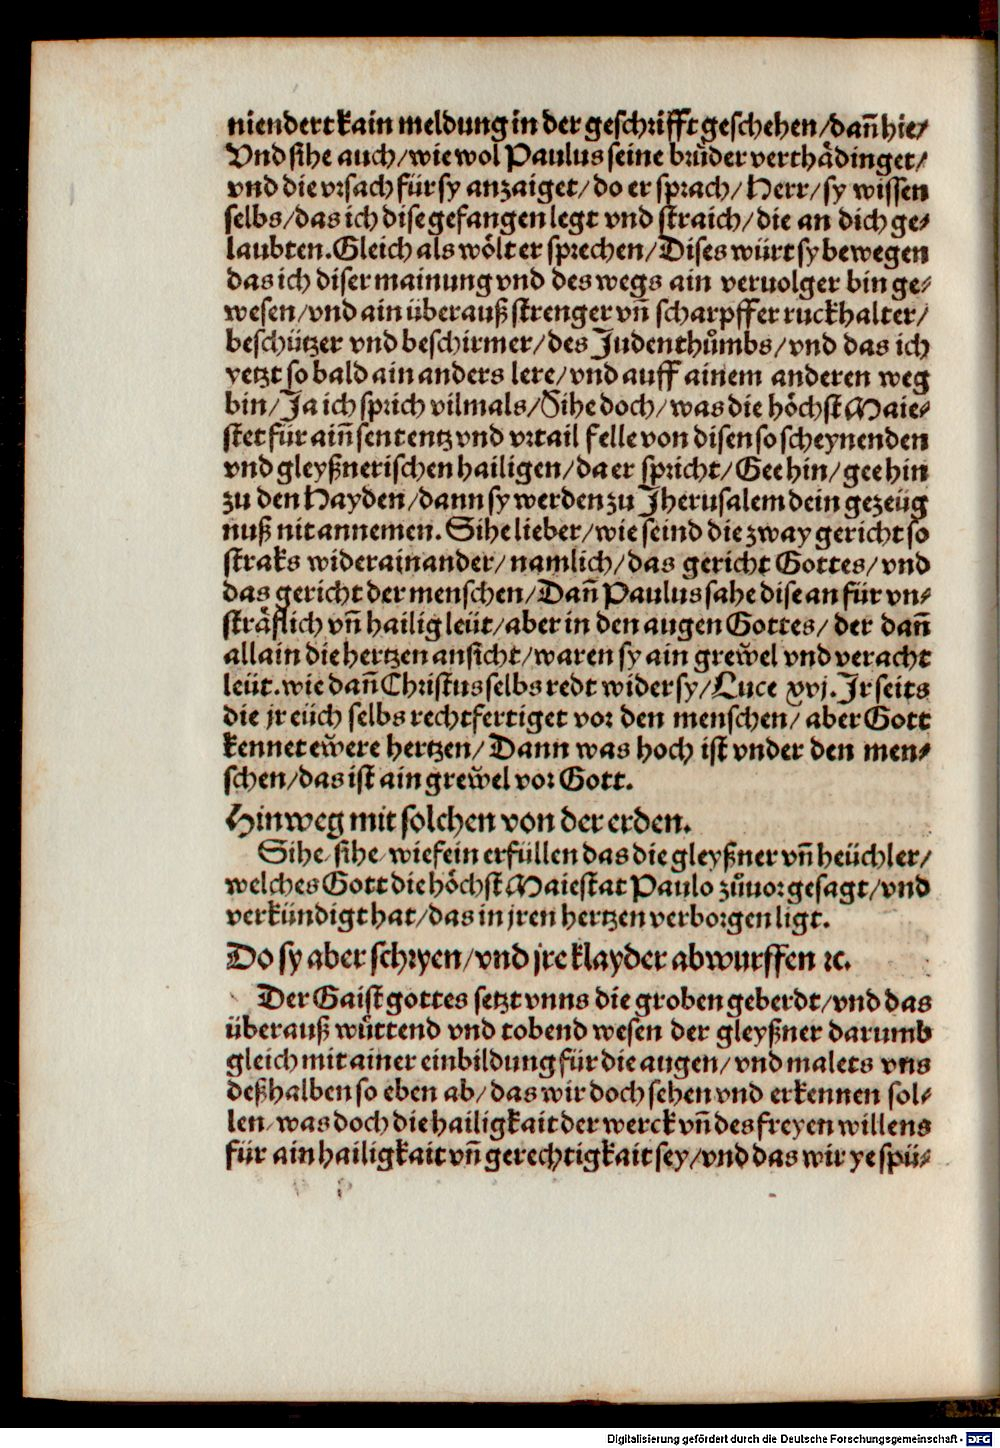 niendert kain meldung in der geschrifft geschehen/dañ hie/
Vnd sihe auch/wie wol Paulus seine brůder verthädinget/
vnd die vrsach für sy anzaiget/do er sprach/Herr/sy wissen
selbs/das ich dise gefangen legt vnd straich/die an dich ge-
laubten.Gleich als wölt er sprechen/Dises würt sy bewegen
das ich diser mainung vnd des wegs ain veruolger bin ge-
wesen/vnd ain überauß strenger vñ scharpffer ruckhalter/
beschützer vnd beschirmer/des Judenthůmbs/vnd das ich
yetzt so bald ain anders lere/vnd auff ainem anderen weg
bin/Ja ich sprich vilmals/Sihe doch/was die höchst Maie-
stet für aiñ sententz vnd vrtail felle von disen so scheynenden
vnd gleyßnerischen hailigen/da er spricht/Gee hin/gee hin
zu den Hayden/dann sy werden zu Jherusalem dein gezeüg
nuß nit annemen. Sihe lieber/wie seind die zway gericht so
straks widerainander/namlich/das gericht Gottes/vnd
das gericht der menschen/Dañ Paulus sahe dise an für vn-
sträflich vñ hailig leüt/aber in den augen Gottes/der dañ
allain die hertzen ansicht/waren sy ain grew̌el vnd veracht
leüt.wie dañ Christus selbs redt wider sy/Luce xvj.Jr seits
die jr eüch selbs rechtfertiget vor den menschen/aber Gott
kennet ew̌ere hertzen/Dann was hoch ist vnder den men-
schen/das ist ain grew̌el vor Gott.
Hinweg mit solchen von der erden.
Sihe/sihe/wie fein erfüllen das die gleyßner vñ heüchler/
welches Gott die höchst Maiestat Paulo zůuor gesagt/vnd
verkündigt hat/das in jren hertzen verborgen ligt.
Do sy aber schryen/vnd jre klayder abwurffen ꝛc.
Der Gaist gottes setzt vnns die groben geberdt/vnd das
überauß wůttend vnd tobend wesen der gleyßner darumb
gleich mit ainer einbildung für die augen/vnd malets vns
deßhalben so eben ab/das wir doch sehen vnd erkennen sol-
len/was doch die hailigkait der werck vñ des freyen willens
für ain hailigkait vñ gerechtigkait sey/vnd das wir ye spü-
Digitalisierung gefördert durch die Deutsche Forschungsgemeinschaft - DFG